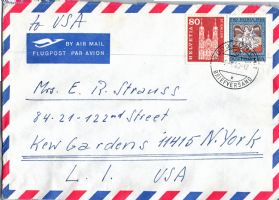 to USA
BY AIR MAIL
FLUGPOST PAR AVION
80
HELVETIA
BRIEFVERSAND
Mrs. E. R. Strauss
84-21-122nd Street
Kew Gardens 11415 N.York
L. I. USA